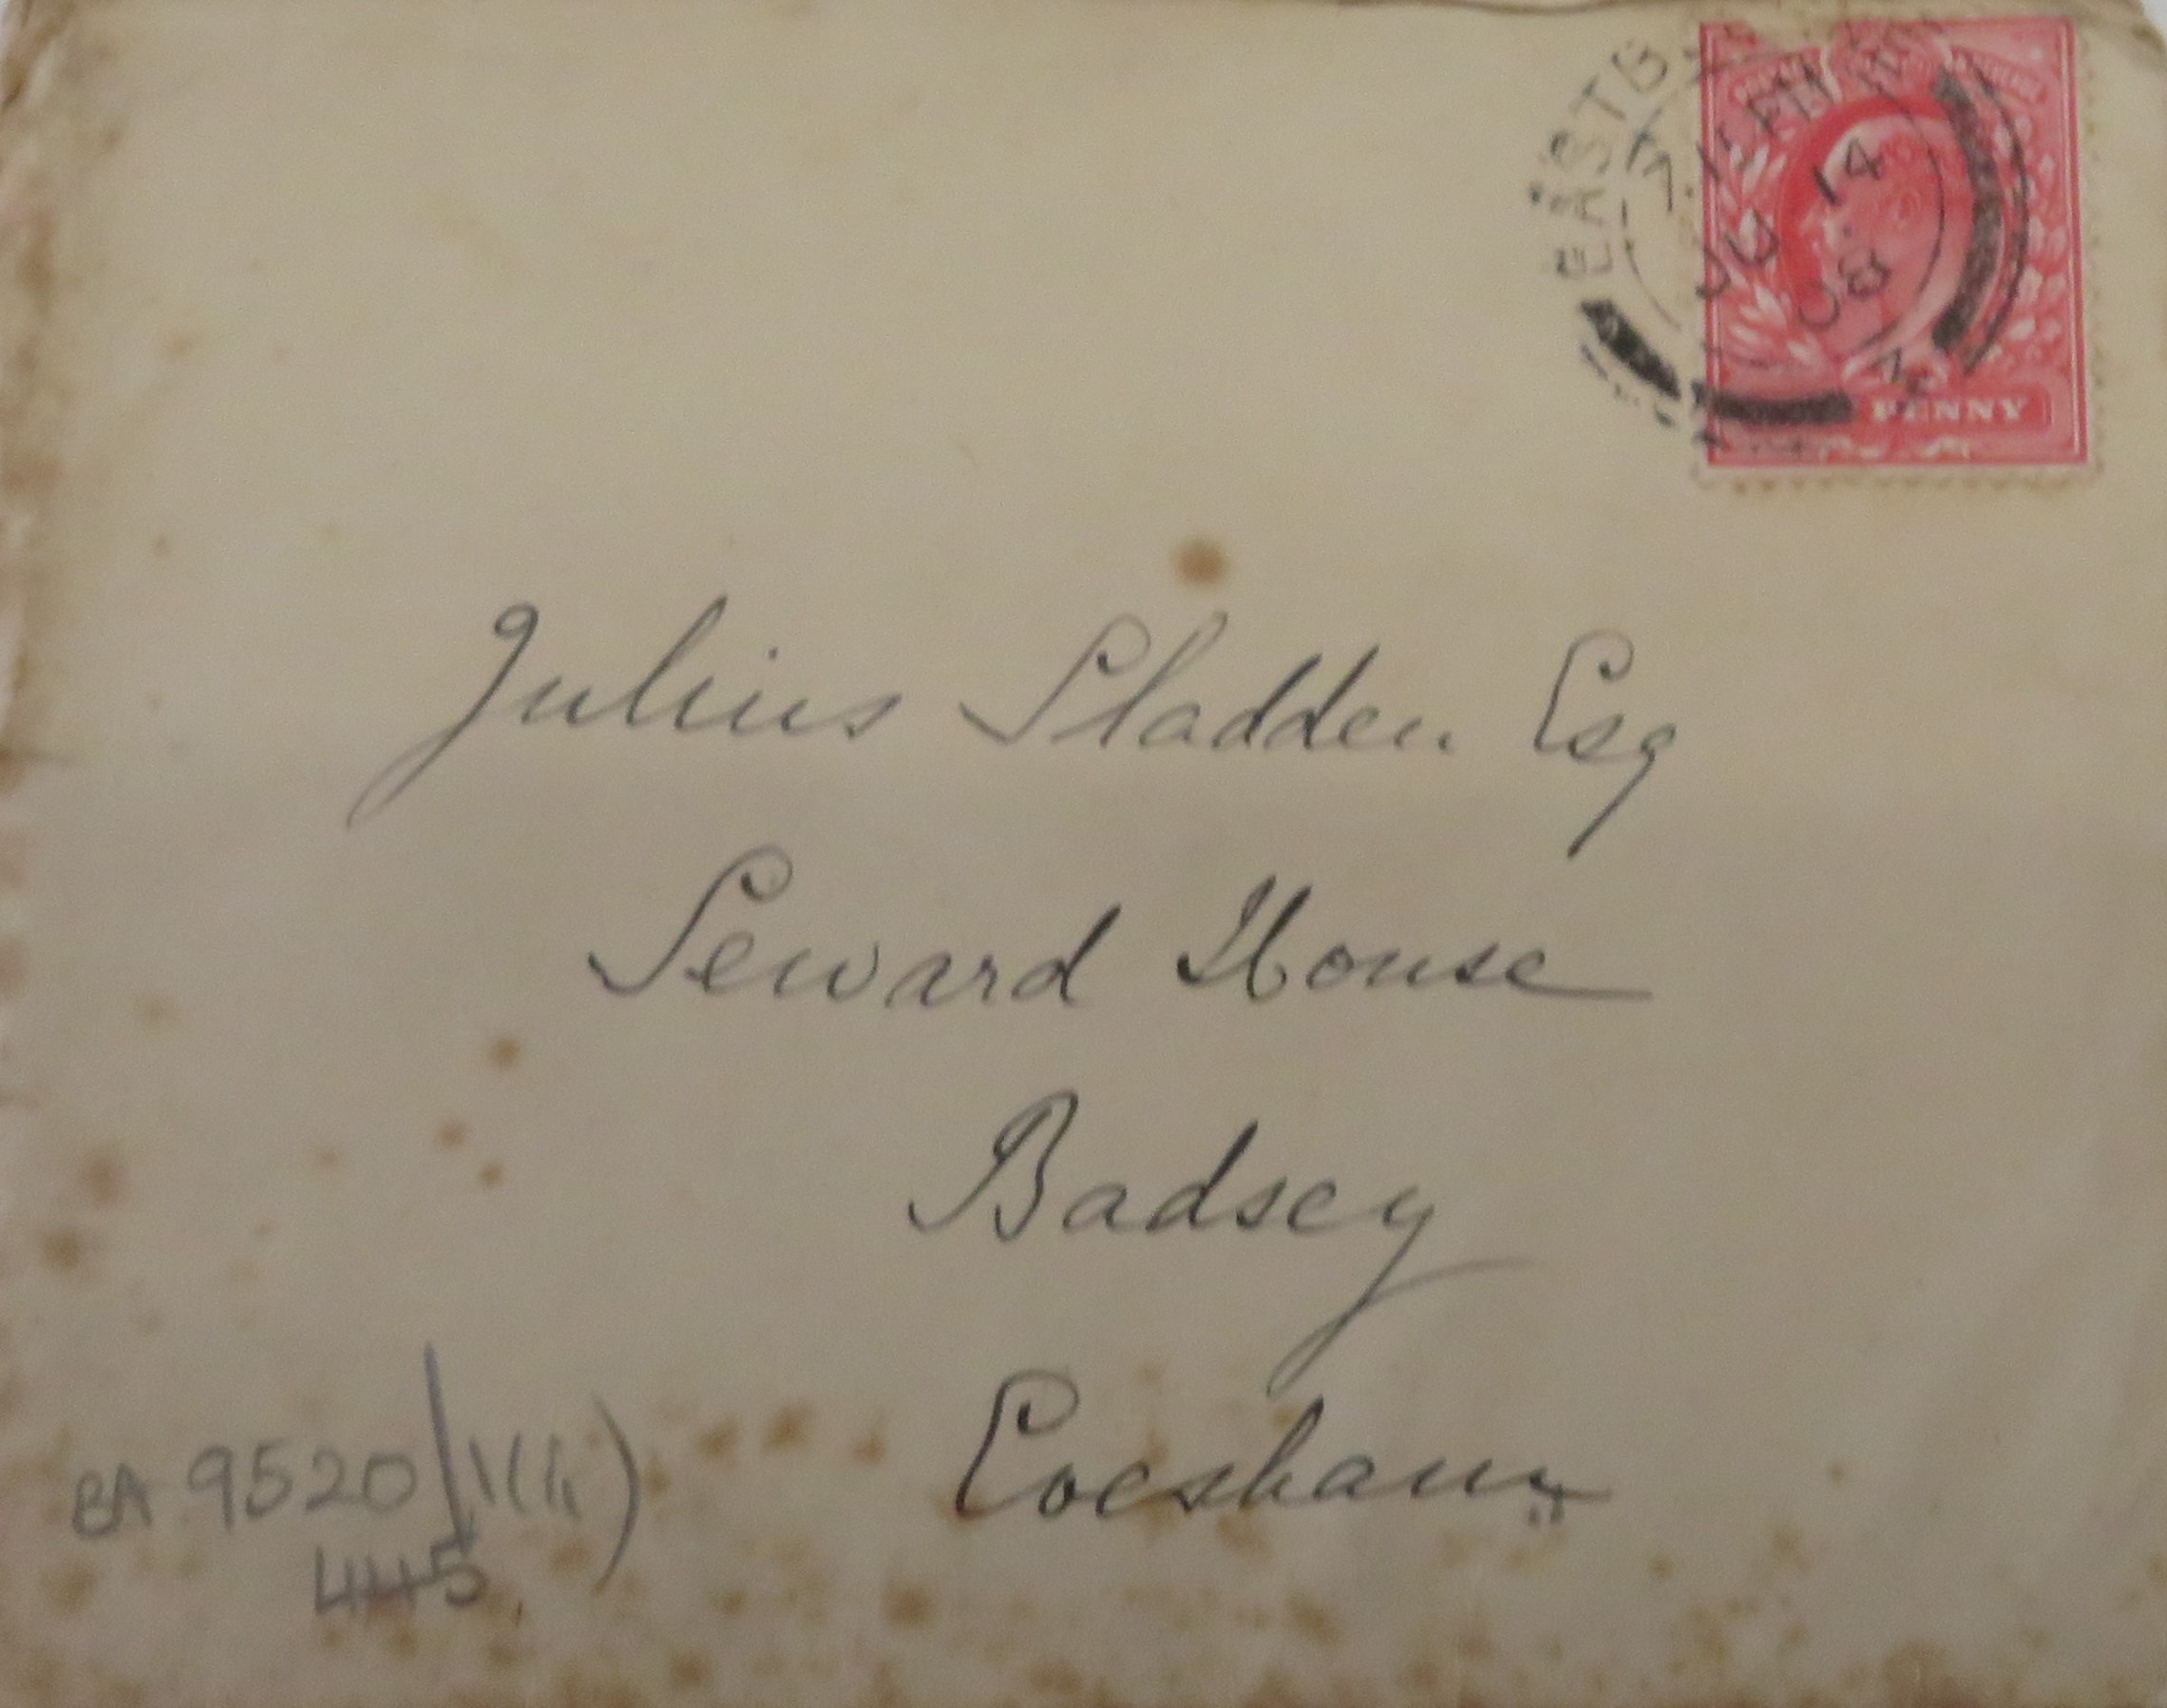 EASTB
7.15 PM
JU 14
08
PENNY
Julius Sladden Esq
Seward House
Badsey
Evesham
BA 9520/1(ii)
445